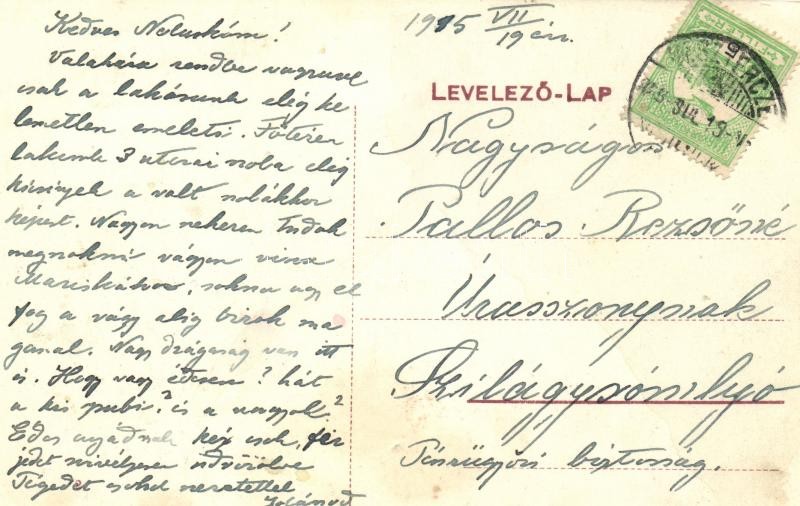 Kedves Neluskám!
Valahára rendbe vagyunk
csak a lakásunk elég ke
lemetlen emeleti. Főtéren
lakunk 3 utcai szoba elég
kicsinyek a volt szobákhoz
képest. Nagyon nehezen tudok
megszokni vágyom vissza
sokszor úgy el
fog a vágy alig birok ma
gamal. Nagy drágaság van itt
is. Hogy vagy édesem? hát
a kis pubi? és a nagyok?
Édes anyádnak kéz csók, fér
jedet szivélyesen üdvözölve
Tégedet csókol szeretettel
1915 VII
19 én.
LEVELEZŐ-LAP
Nagyságos
Pallos Rezsőné
Úrasszonynak
Szilágysómlyó
Pénzügyőri biztosság.